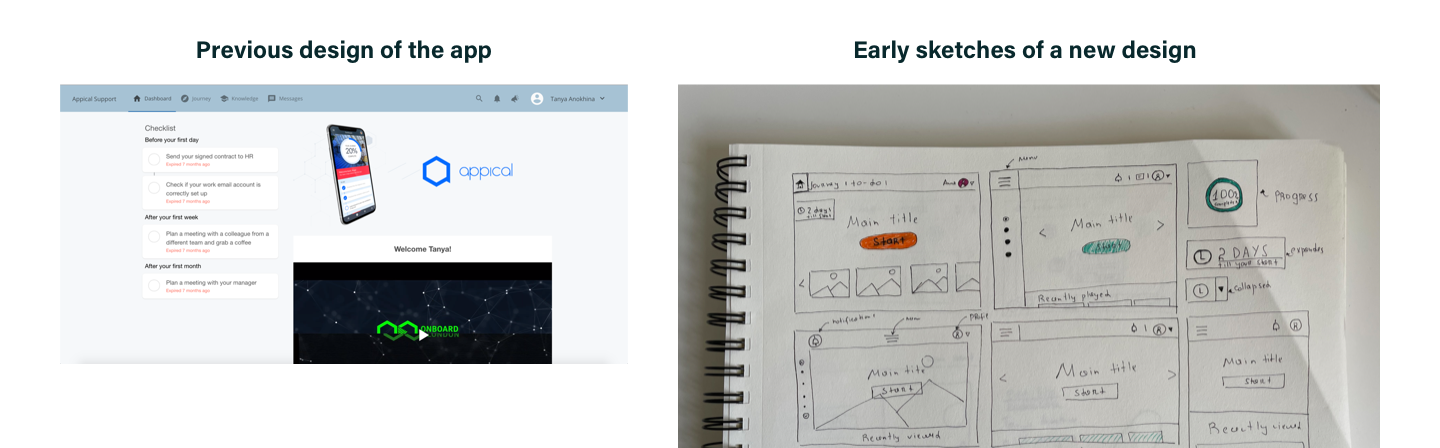 Previous design of the app
Early sketches of a new design
Appical Support
Dashboard
Journey
Knowledge
Messages
Tanya Anokhina
Checklist
Before your first day
Send your signed contract to HR
Expired 7 months ago
Check if your work email account is
correctly set up
Expired 7 months ago
After your first week
Plan a meeting with a colleague from a
different team and grab a coffee
Expired 7 months ago
After your first month
Plan a meeting with your manager
Expired 7 months ago
20%
appical
Welcome Tanya!
ONBOARD
LONDON
Journey
to-do
Anna
2 days
till start
Main title
Start
Menu
Main title
Start
Recently played
100%
PROGRESS
2 DAYS
till your start
collapsed
notifications
Menu
Main title
Start
Recently viewed
Main title
Start
Main title
Start
Recently viewed